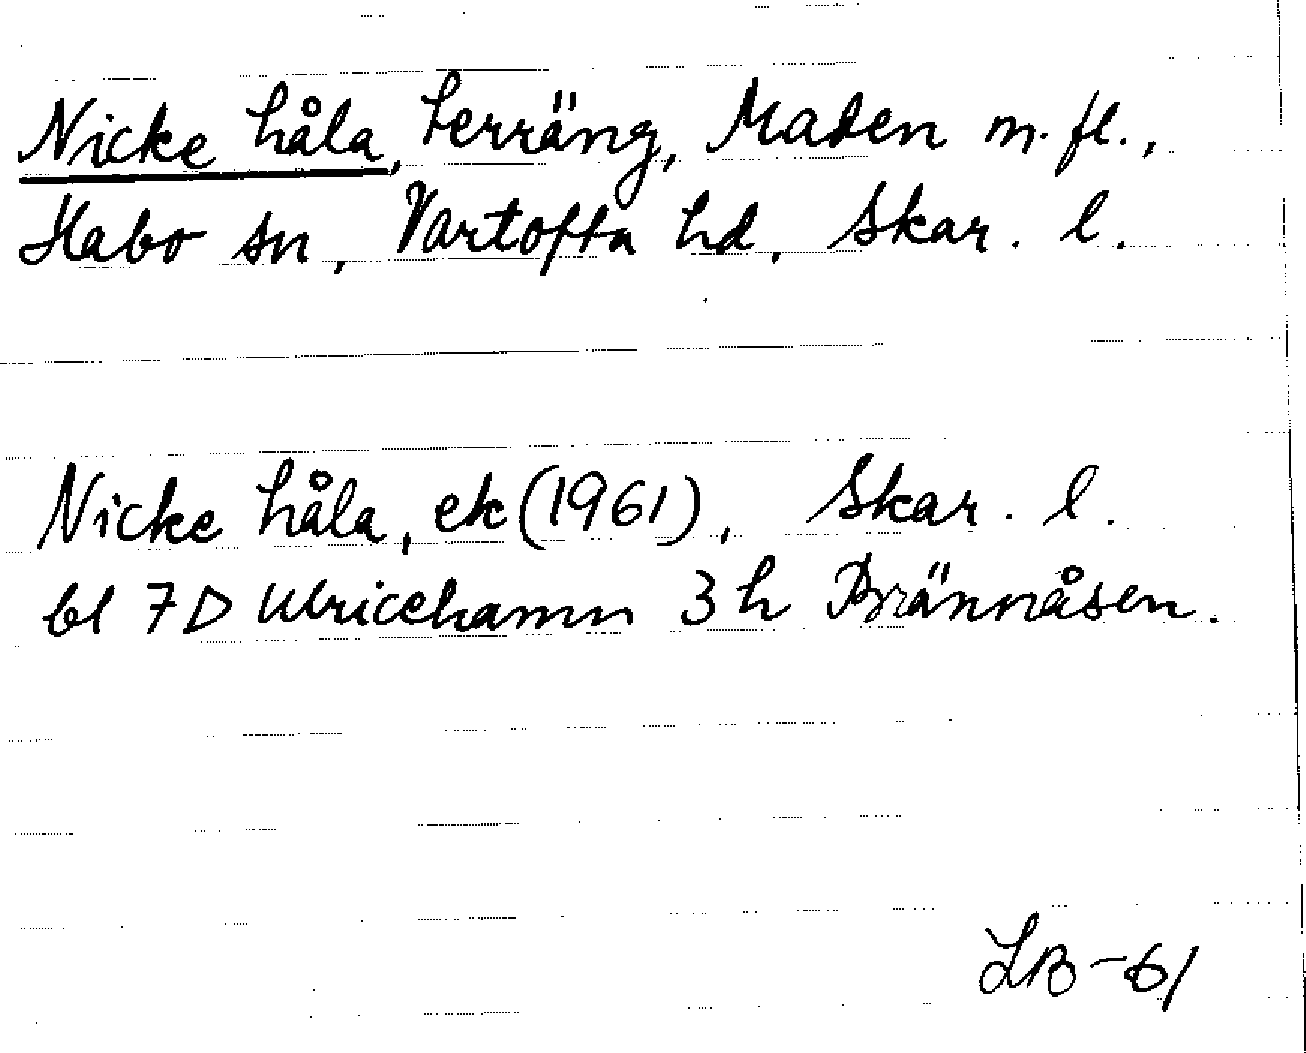 Nicke håla, terräng, Maden m. fl.,
Habo sn, Vartofta hd, Skar. l.
Nicke håla, ek (1961), Skar. l.
bl 7D Ulricehamn 3h Brännåsen.
LB-61